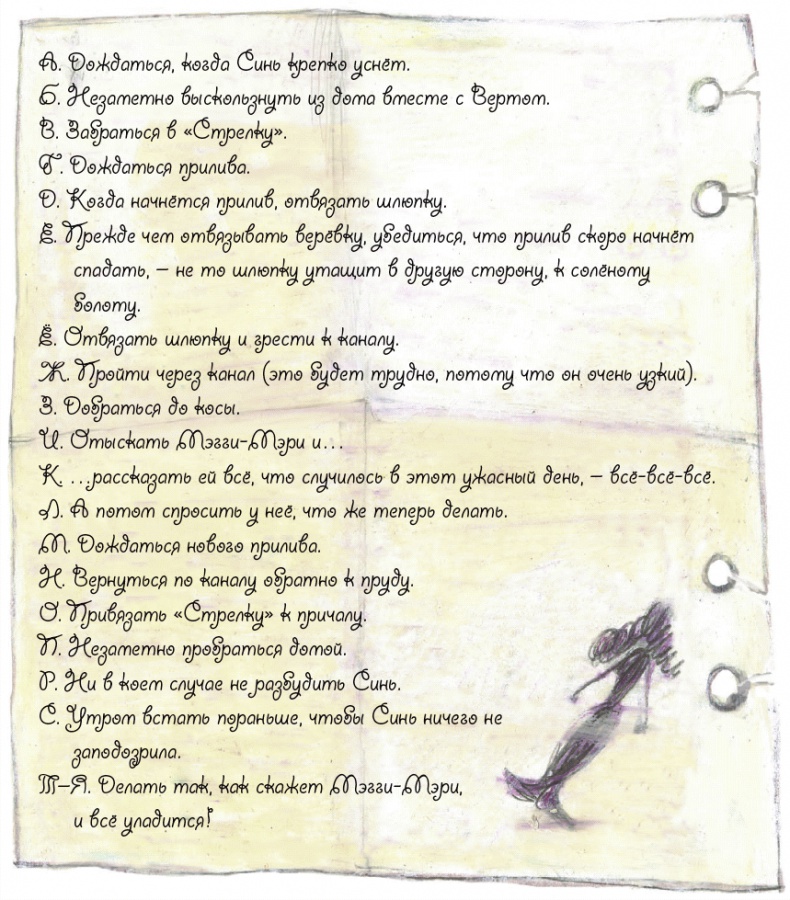 А. Дождаться, когда Синь крепко уснёт.
Б. Незаметно выскользнуть из дома вместе с Вертом.
В. Забраться в «Стрелку».
Г. Дождаться прилива.
Д. Когда начнётся прилив, отвязать шлюпку.
Е. Прежде чем отвязывать верёвку, убедиться, что прилив скоро начнёт
спадать, – не то шлюпку утащит в другую сторону, к солёному
болоту.
Ё. Отвязать шлюпку и грести к каналу.
Ж. Пройти через канал (это будет трудно, потому что он очень узкий).
З. Добраться до косы.
И. Отыскать Мэгги-Мэри и...
К. ...рассказать ей всё, что случилось в этот ужасный день, – всё-всё-всё.
Л. А потом спросить у неё, что же теперь делать.
М. Дождаться нового прилива.
Н. Вернуться по каналу обратно к пруду.
О. Привязать «Стрелку» к причалу.
П. Незаметно пробраться домой.
Р. Ни в коем случае не разбудить Синь.
С. Утром встать пораньше, чтобы Синь ничего не
заподозрила.
Т–Я. Делать так, как скажет Мэгги-Мэри,
и всё уладится!